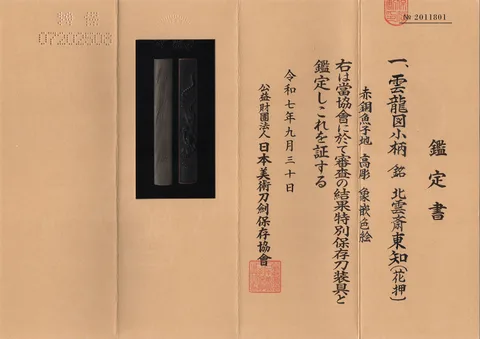 № 2011801
鑑定書
一、雲龍図小柄 銘 北雲斎東知(花押)
赤銅魚子地 高彫 象嵌色絵
右は當協會に於て審査の結果特別保存刀装具と
鑑定しこれを証する
令和七年九月三十日
公益財團法人 日本美術刀劍保存協會
07202508